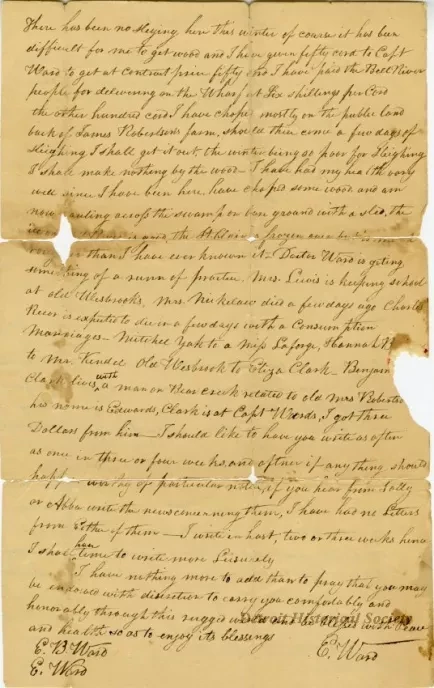 There has been no sleying here this winter of course it has been
difficult for me to get wood and I have given fifty cord to Capt
Ward to get at contract price fifty and I have paid the Bell River
people for delivering on the Wharf at Six shillings per Cord
the other hundred cord I have choped mostly on the public land
back of James Robertson's farm. should there come a few days of
sleighing I shall get it out. the winter being so poor for sleighing
I shall make nothing by the wood I have had my health very
well since I have been here, have choped some wood and am
now hauling across the swamp on bare ground with a sled, the
is good, the St Clair frozen over
than I have ever known it - Doctor Ward is geting
something of a runn of practice. Mrs. Lewis is keeping school
at old Wesbrooks, Mrs. died a few days ago Charles
is expected to die in a few days with a Consumption
Marriages - Mitchel Yax to a Miss Laforge,
to Mr. Kindel Old Wesbrook to Eliza Clark. Benjamin
Clark lives with a man on Bear creek related to old Mrs Robertson
his name is Edwards, Clark is at Capt Wards, I got three
Dollars from him - I should like to have you write as often
as once in three or four weeks, and oftner if any thing should
happ worthy of particular notice, if you hear from Sally
or Abba write the news concerning them, I have had no Letters
from either of them - I write in hast, two or three weeks hence
I shall have time to write more Leisurely
I have nothing more to add than to pray that you may
be endowed with discretion to carry you comfortably and
honorably through this rugged world and be blessed with peace
and health so as to enjoy its blessings
E. Ward
E. B Ward
E. Ward
Detroit Historical Society